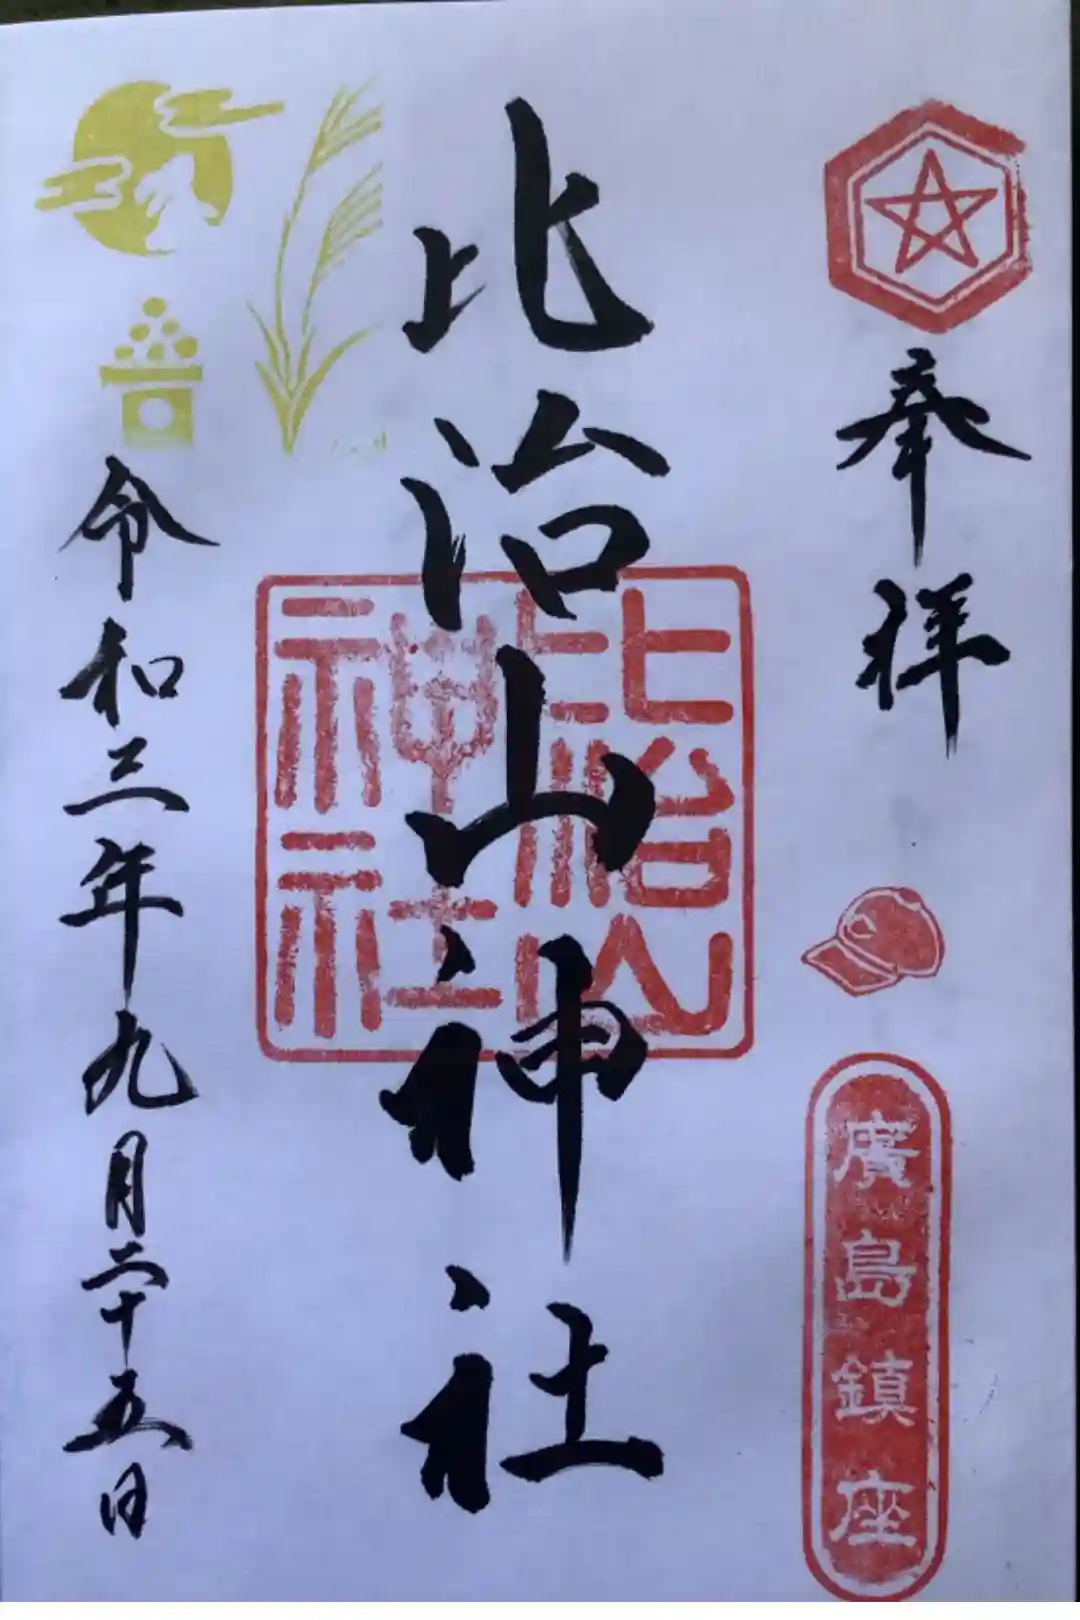 奉拝
廣島鎮座
比治山神社
比治山神社
令和三年九月二十五日